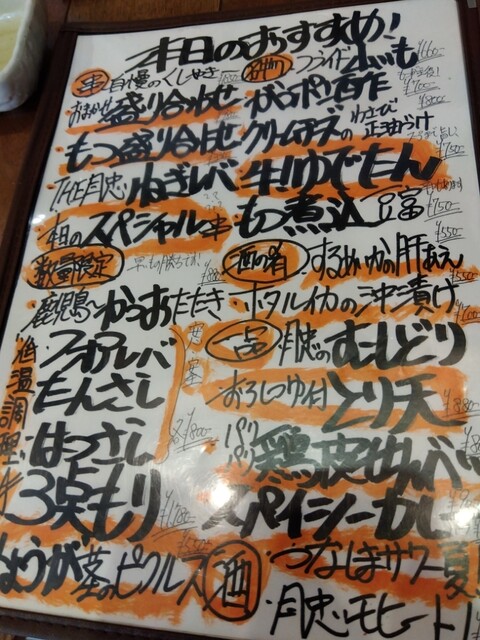 本日のおすすめ!
串 自慢のくしやき
おまかせ 盛り合わせ
もつ盛り合わせ
THE月忠 ねぎレバ
本日のスペシャル串
数量限定 早いもの勝ちです!
鹿児島〜かつおたたき
低温調理
フォアレバ
たんさし
はつさし
3点もり ¥1,780-
しょうが茎のピクルス
フライド山いも ¥660-
がつポン酢
クリームチーズのわさび正油らけ
牛!ゆでたん ¥750-
もつ煮込豆富 ¥750-
¥550-
酒の肴 するめいかの肝あえ ¥550-
ホタルイカの沖漬け
一品 月忠のむしどり
おろしつゆ付 とり天 ¥880-
パリパリ 鶏皮せんべい
スパイシーカレー
酒 つなしまサワー夏
月忠モヒート!